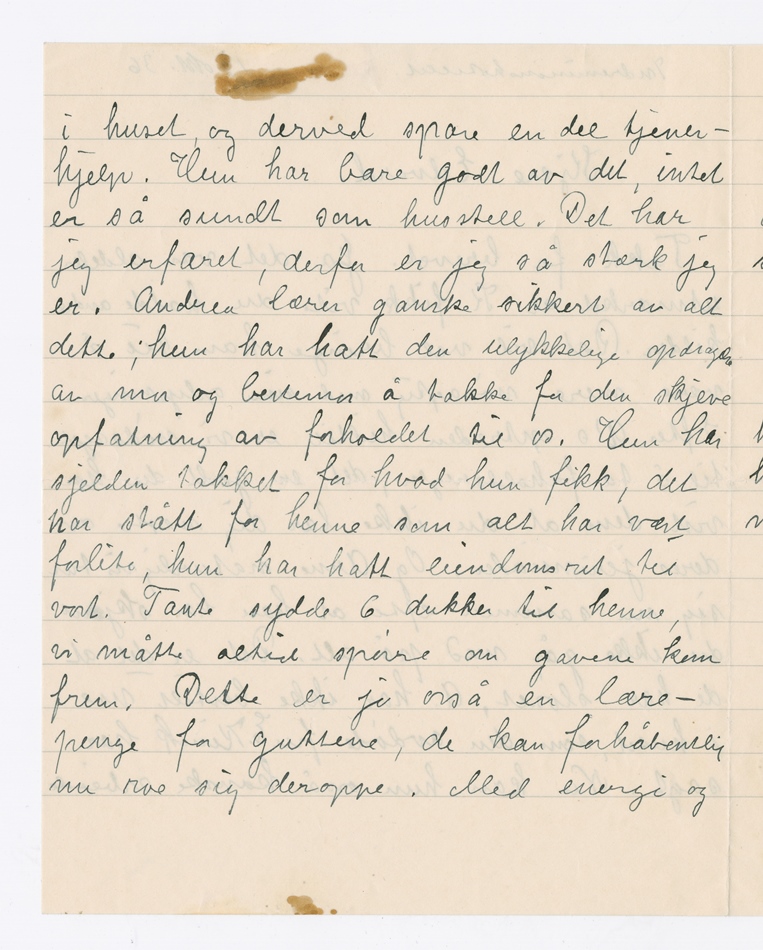 i huset, og derved spare en del tjener-
hjelp. Hun har bare godt av det, intet
er så sundt som husstell. Det har
jeg erfaret, derfor er jeg så stærk jeg
er. Andrea lærer ganske sikkert av alt
dette; hun har hatt den ulykkelige
av mor og bestemor å takke for den skjeve
opfatning av forholdet til os. Hun har
sjelden takket for hvad hun fikk, det
har stått for henne som alt har vært
forlite, hun har hatt eiendomsret til
vort. Tante sydde 6 dukker til henne,
vi måtte altid spørre om gavene kom
frem. Dette er jo også en lære-
penge for guttene, de kan forhåbentlig
nu roe sig deroppe. Med energi og